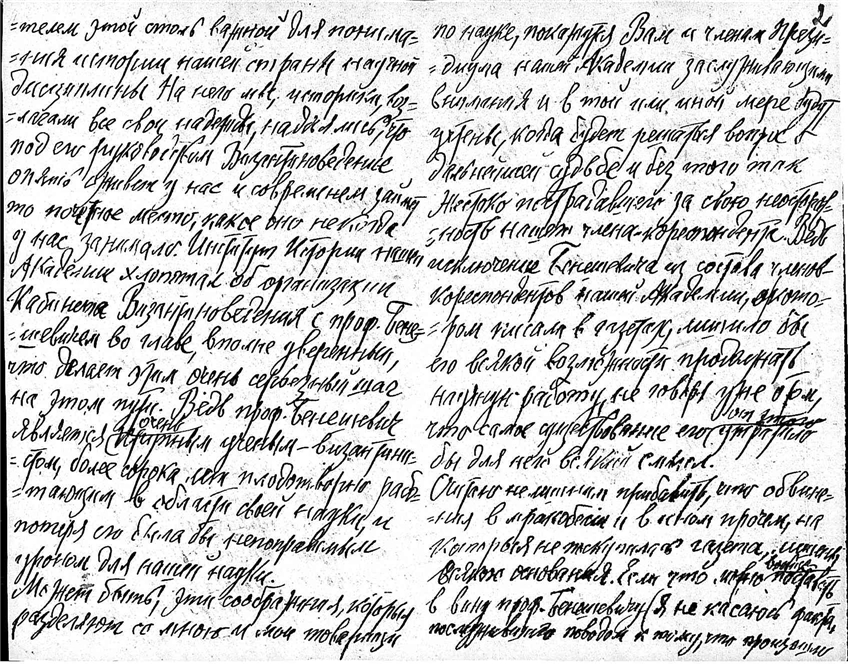 2
=телем этой столь важной для понима-
=ния истории нашей страны научной
дисциплины. На него мы, историки, воз-
=лагали все свои надежды, надеялись, что
под его руководством Византиноведение
опять оживет у нас и современем займет
то почетное место, какое оно некогда
у нас занимало. Институт Истории нашей
Академии хлопотал об организации
Кабинета Византиноведения с проф. Бене-
=шевичем во главе, вполне уверенный,
что делает этим очень серьезный шаг
на этом пути. Ведь проф. Бенешевич
является очень крупным ученым-византини-
=стом, более сорока лет плодотворно рабо-
=тающим в области своей науки, и
потеря его была бы непоправимым
уроном для нашей науки.
Может быть, эти соображения, которые
разделяют со мною и мои товарищи
по науке, покажутся Вам и членам Прези-
=диума нашей Академии заслуживающими
внимания и в той или иной мере будут
учтены, когда будет решаться вопрос о
дальнейшей судьбе и без того так
жестоко пострадавшего за свою неосторож-
=ность нашего члена-кореспондента. Ведь
исключение Бенешевича из состава членов-
кореспондентов нашей Академии, о кото-
=ром писали в газетах, лишило бы
его всякой возможности продолжать
научную работу, не говоря уже о том,
что самое существование его от этого утратило
бы для него всякий смысл.
Считаю не лишним прибавить, что обвине-
=ния в мракобесии и в ином прочем, на
которые не скупилась газета, лишены
всяких основания. Если что можно поставить
в вину проф. Бенешевичу (я не касаюсь факта,
послужившего поводом к тому, что произошло